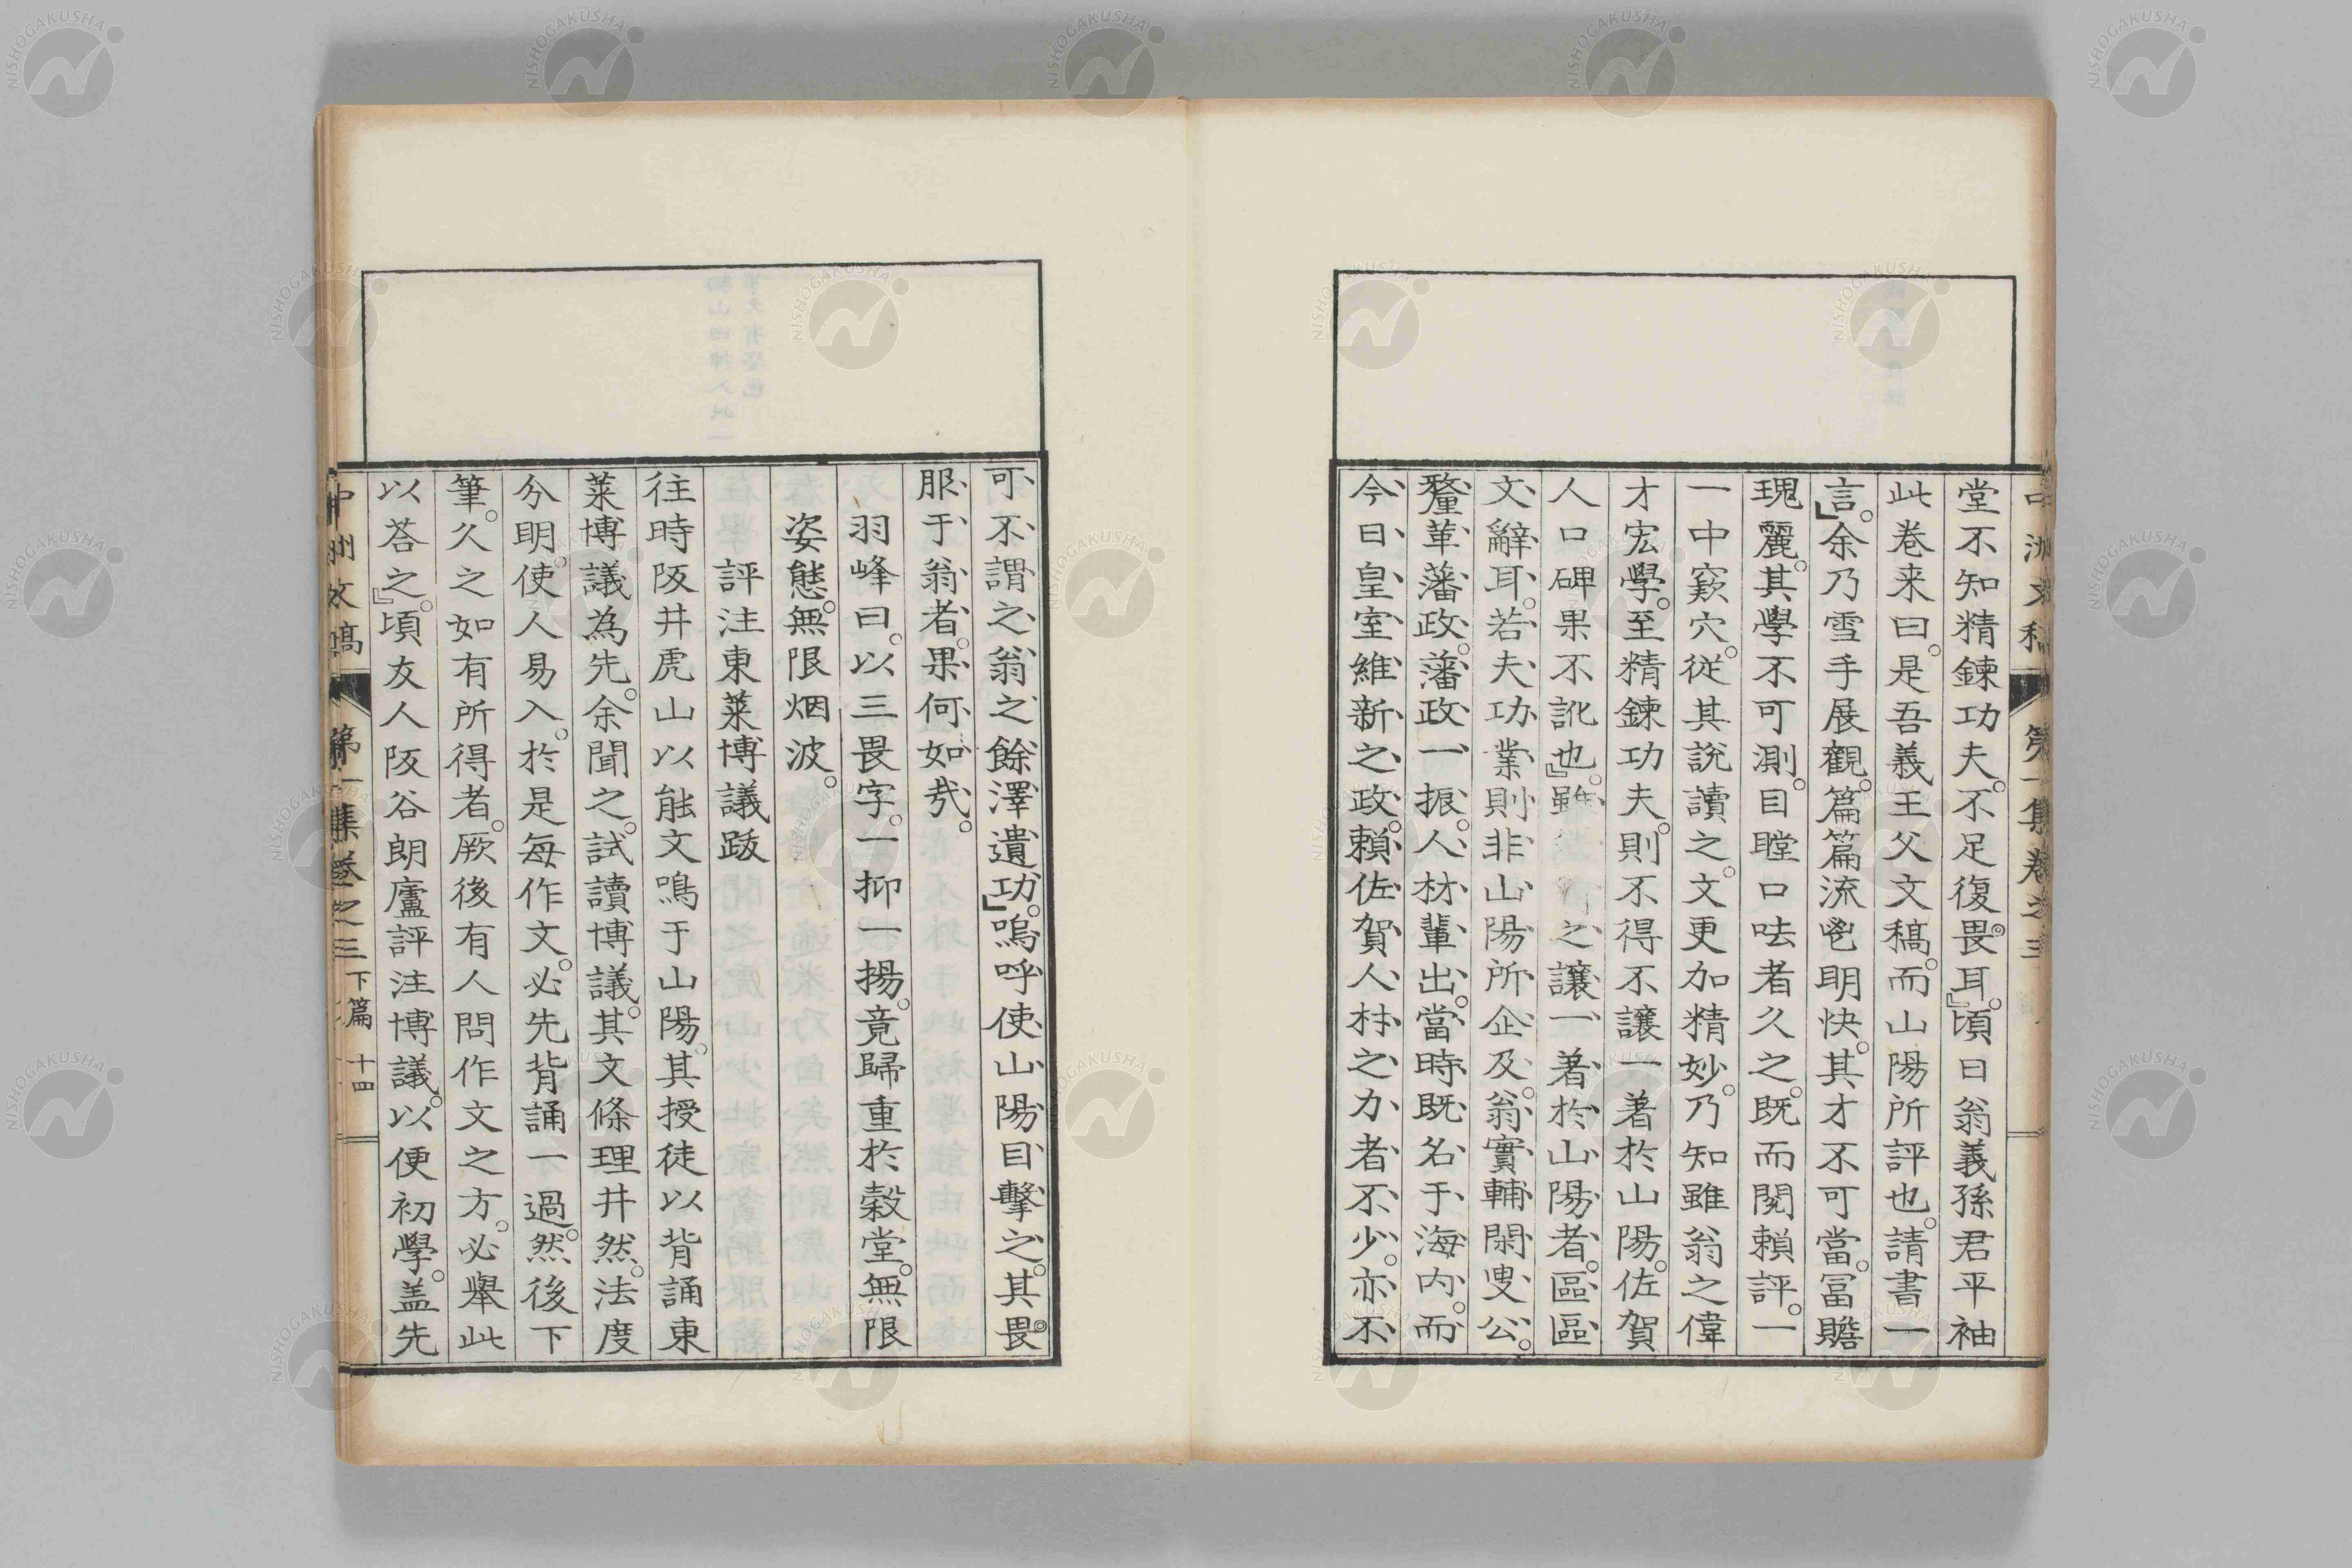 中洲文稿 第一集卷之三
堂不知精鍊功夫。不足復畏耳。』頃日翁義孫君平袖
此卷来曰。是吾義王父文稿。而山陽所評也。請書一
言。』余乃雪手展觀。篇篇流鬯明快。其才不可當。冨贍
瑰麗。其學不可測。目瞠口呿者久之。既而閱賴評。一
一中窾穴。從其說讀之。文更加精妙。乃知雖翁之偉
才宏學。至精鍊功夫。則不得不讓一著於山陽。佐賀
人口碑果不訛也。』雖之讓一著於山陽者。區區
文辭耳。若夫功業則非山陽所企及。翁實輔閑叟公。
釐革藩政。藩政一振。人材輩出。當時既名于海内。而
今日皇室維新之政。賴佐賀人材之力者不少。亦不
可不謂之翁之餘澤遺功。』嗚呼使山陽目擊之。其畏
服于翁者。果何如哉。
羽峰曰。以三畏字。一抑一揚。竟歸重於穀堂。無限
姿態。無限烟波。
評注東萊博議跋
往時阪井虎山以能文鳴于山陽。其授徒以背誦東
萊博議為先。余聞之。試讀博議。其文條理井然。法度
分明。使人易入。於是每作文。必先背誦一過。然後下
筆。久之如有所得者。厥後有人問作文之方。必舉此
以荅之。』頃友人阪谷朗廬評注博議。以便初學。盖先
中洲文稿 第一集卷之三 下篇 十四
NISHOGAKUSHA